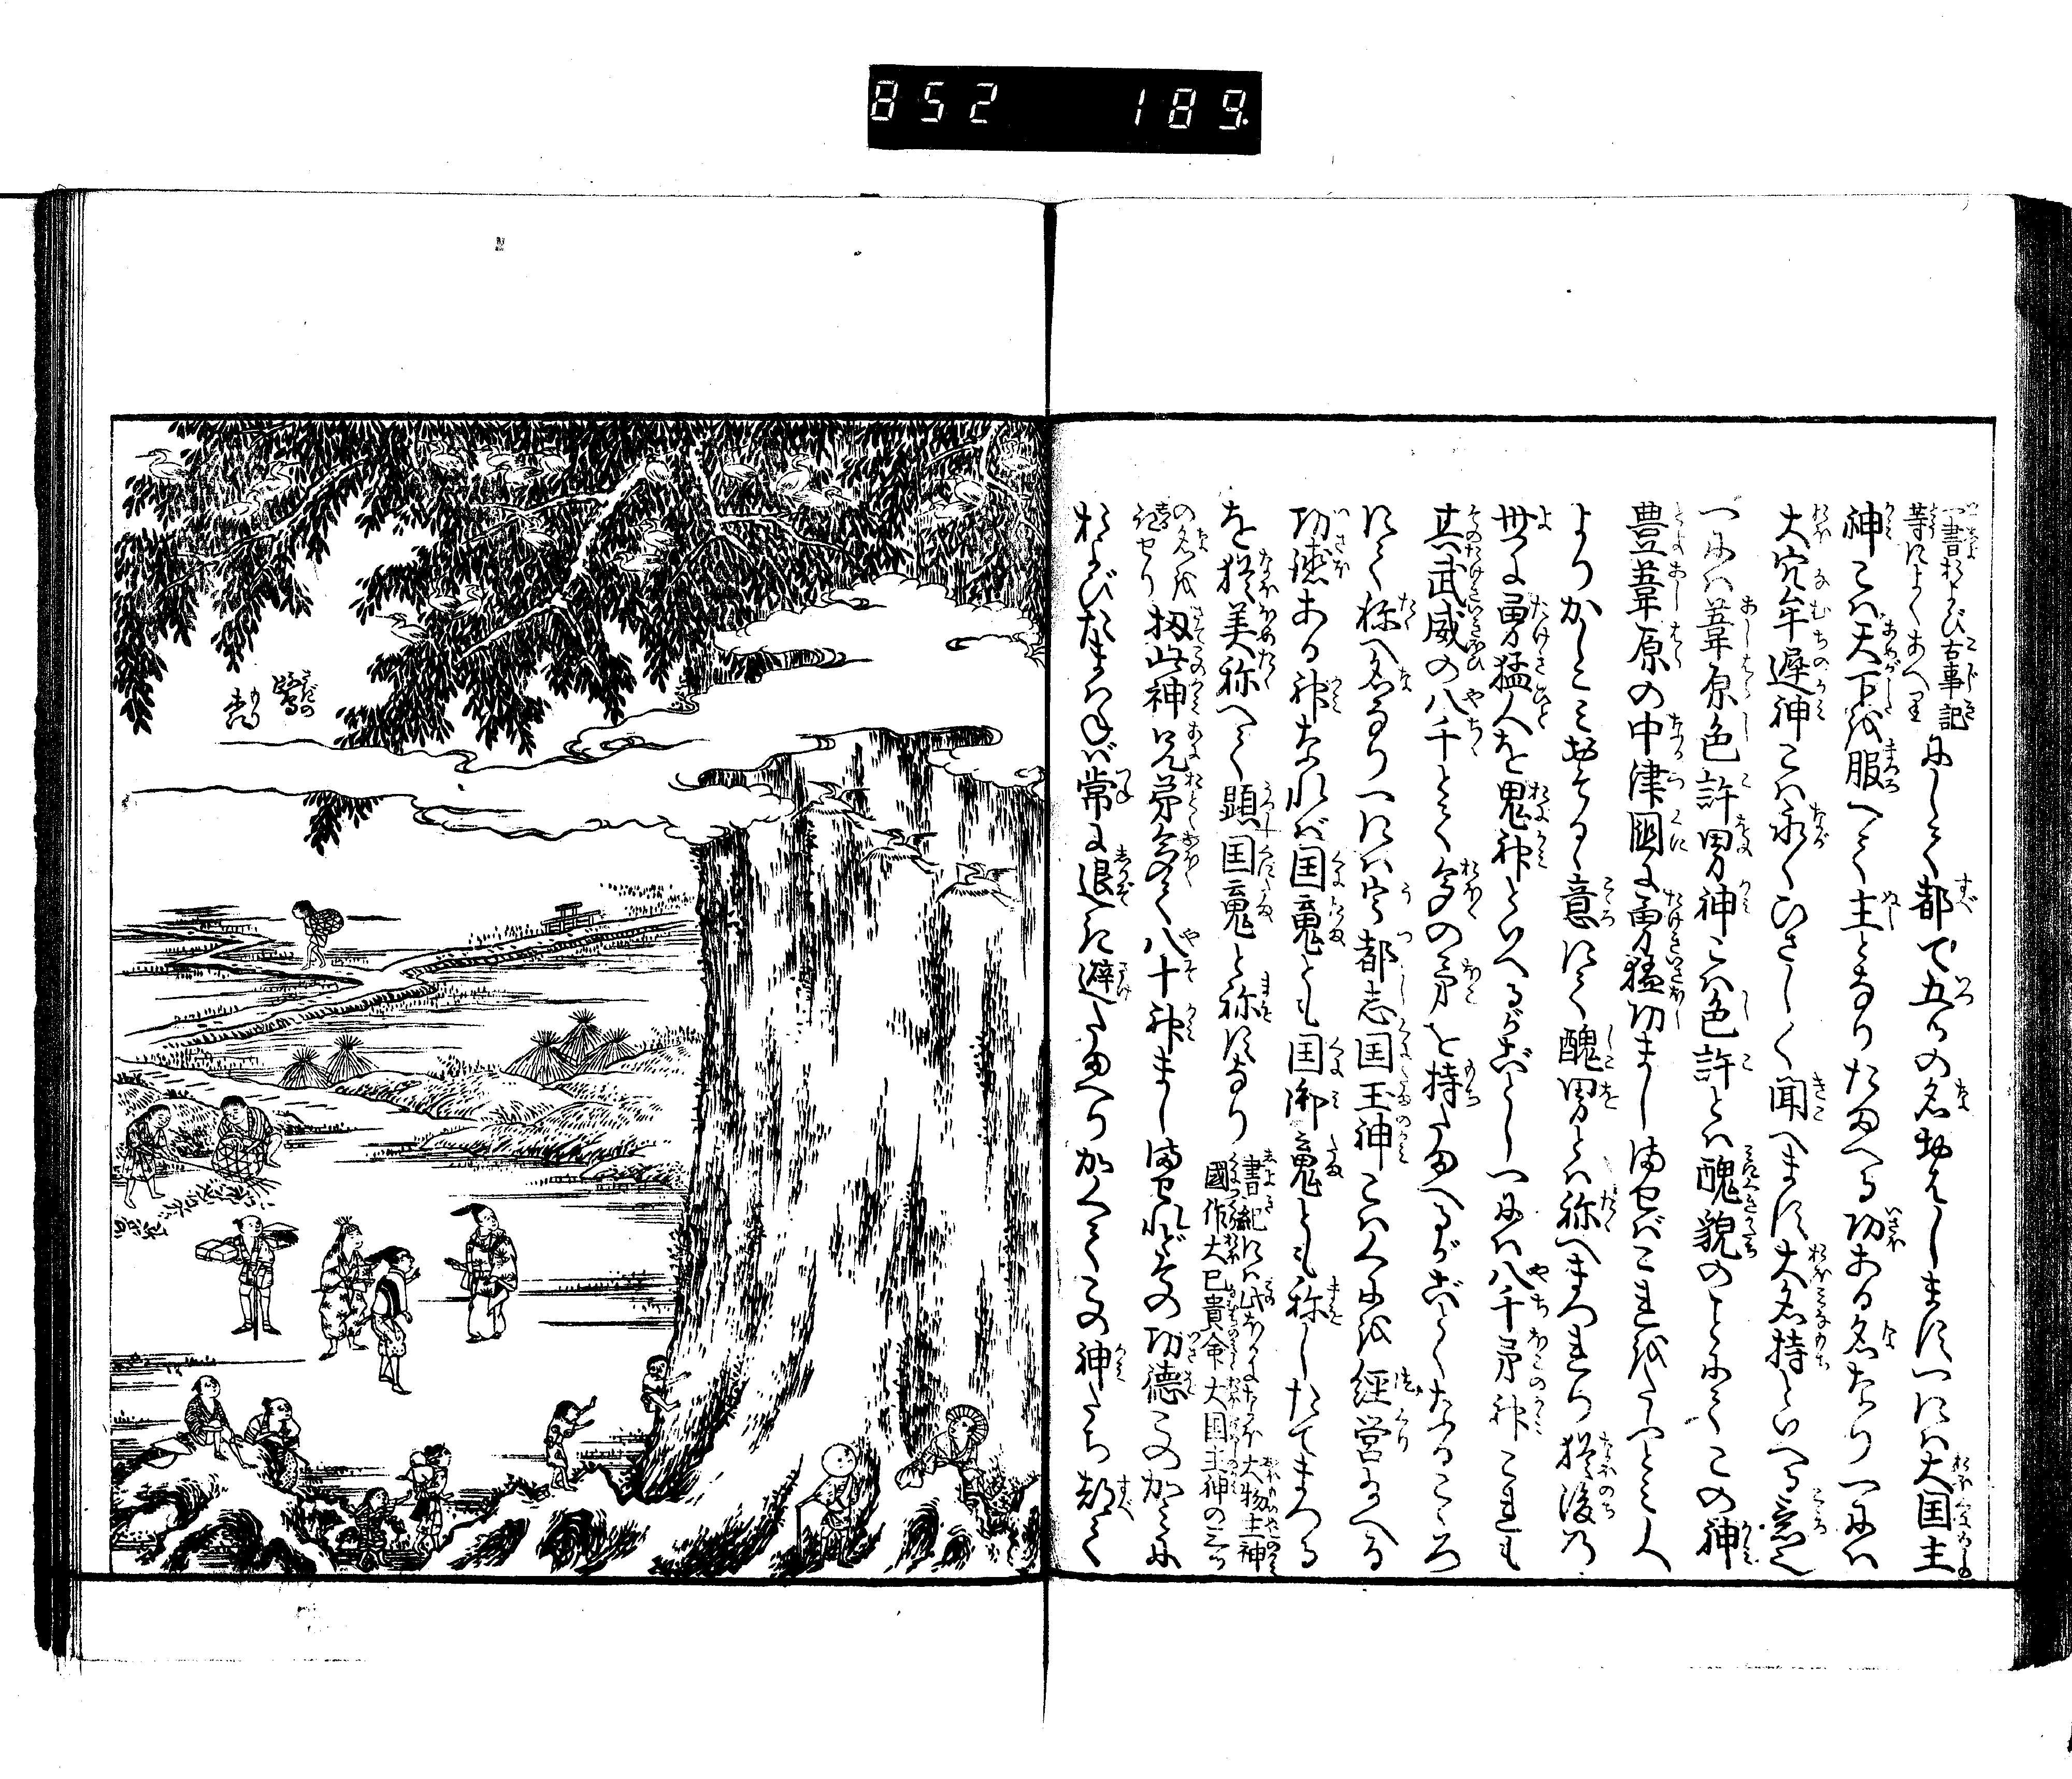 852 189
一書および古事記
等によくあへり
にして都て五つの名おはします一には大国主
神こは天下を服へて主となりたまへる功ある名なり一には
大穴牟遅神こは永くひさしく聞へます大名持といへる意也
一には葦原色許男神こは色許とは醜貌のことにてこの神
豊葦原の中津国に勇猛功ましませばこれをうつとみ人
よりかしこみおそるゝ意にて醜男とは称へまつれり猶後乃
世に勇猛人を鬼神といへるがごとし一には八千矛神これも
其武威の八千とて多の矛を持たまへるがごとくなるこゝろ
にて称へ名なり一には宇都志国玉神こは人にを経営給へる
功徳ある神なれば国霊とも国御霊とも称したてまつる
を猶美称へて顕国霊と称すなり
書紀には此ほかになほ大物主神
國作大己貴命大国主神の三つ
の名を
記せり
扨此神兄弟多く八十神ましませれどその功徳このかみに
およびたまはねば常に退き避たまへりかくてこの神たち都て
さぎの
鷺
もり
森